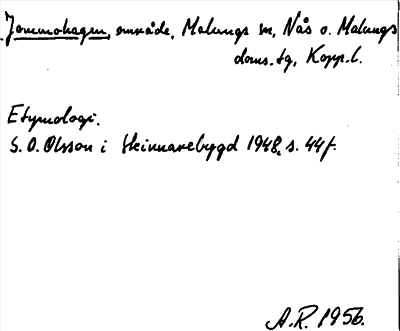 Jommohagen, område, Malungs sn, Nås o. Malungs
doms.sg, Kopp.l.
Etymologi.
S. O. Olsson i Skinnarebygd 1948, s. 44f.
A.R. 1956.